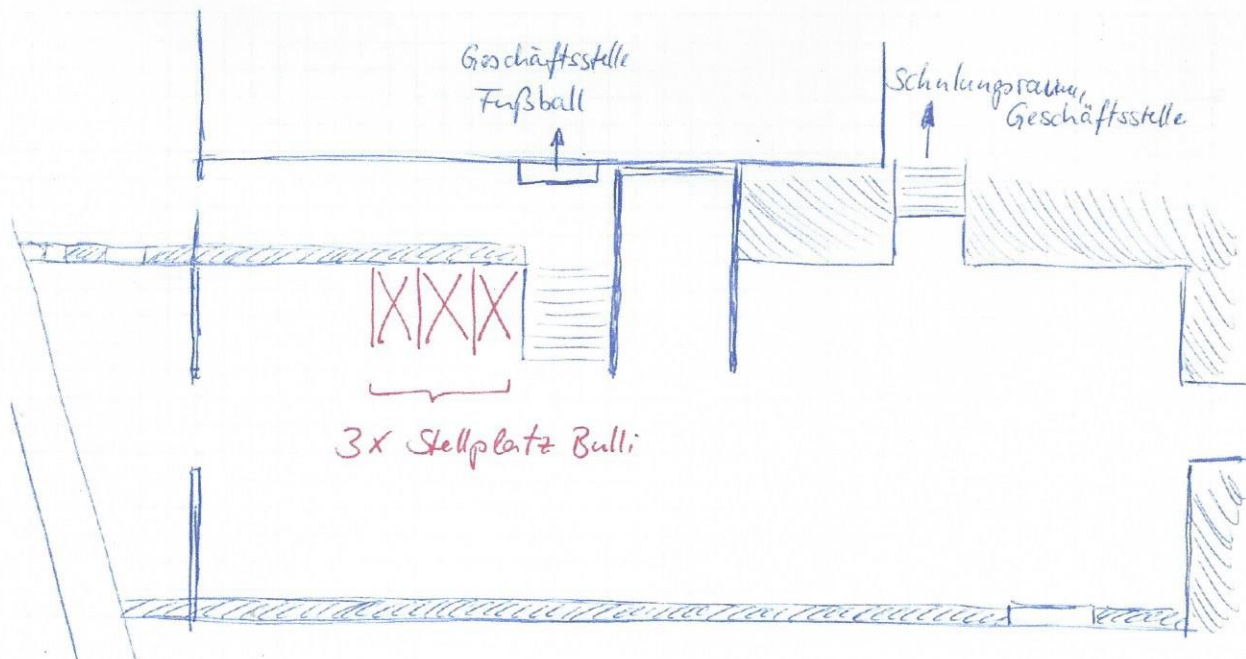 Geschäftsstelle
Fußball
Schulungsraum,
Geschäftsstelle
3x Stellplatz Bulli